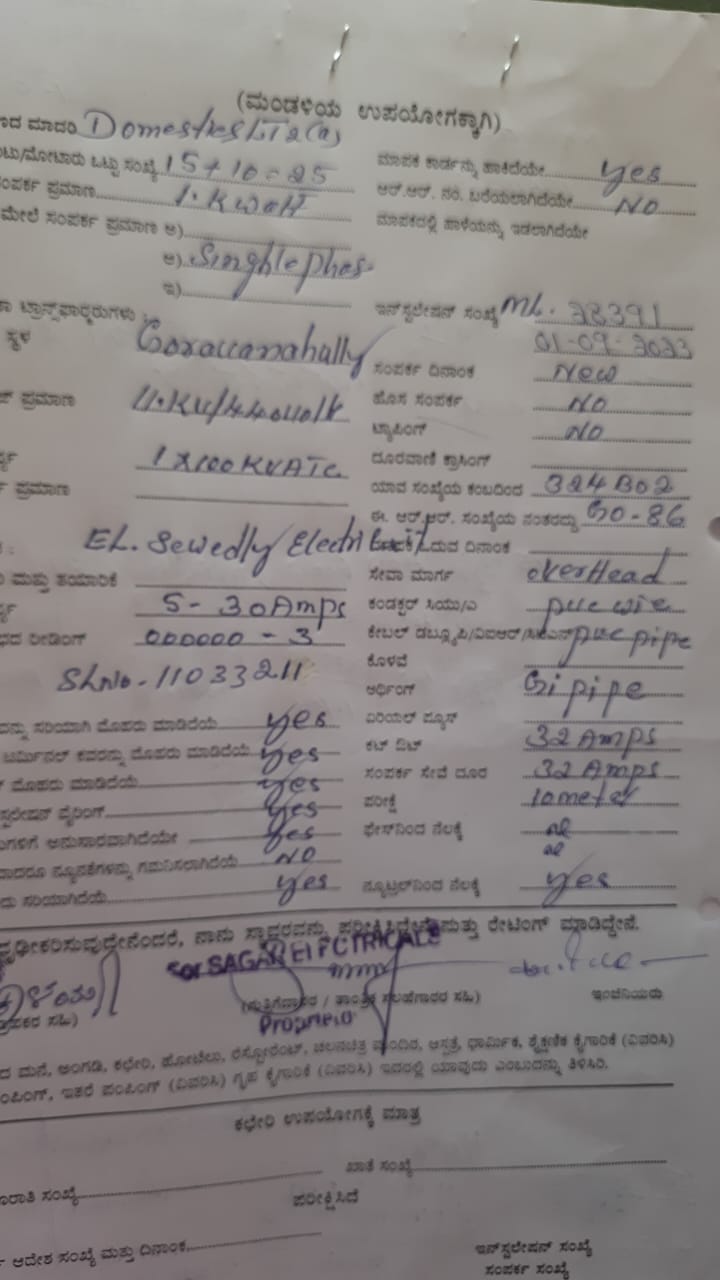 (ಮಂಡಳಿಯ ಉಪಯೋಗಕ್ಕಾಗಿ)
ಮಾದರಿ Domestic LT2(a)
ಒಟ್ಟು ಸಂಖ್ಯೆ 15+10=25 ಮಾಪಕ ಕಾರ್ಡನ್ನು ಹಾಕಿದೆಯೇ yes
ಸಂಪರ್ಕ ಪ್ರಮಾಣ 1.Kwatt ಆರ್.ಆರ್. ನಂ. ಬರೆಯಲಾಗಿದೆಯೇ NO
ಮೇಲೆ ಸಂಪರ್ಕ ಪ್ರಮಾಣ ಅ) ಮಾಪಕದಲ್ಲಿ ಹಾಳೆಯನ್ನು ಇಡಲಾಗಿದೆಯೇ
ಆ) Singhle phas
ಇ)
ಟ್ರಾನ್ಸ್‌ಫಾರ್ಮರುಗಳು : ಇನ್‌ಸ್ಟಲೇಷನ್ ಸಂಖ್ಯೆ ML. 38391
ಸ್ಥಳ 01-09-2023
ಸಂಪರ್ಕ ದಿನಾಂಕ New
ಪ್ರಮಾಣ 11.KV/440volt ಹೊಸ ಸಂಪರ್ಕ NO
ಟ್ಯಾಪಿಂಗ್ NO
1X100KVATC ದೂರವಾಣಿ ಕ್ರಾಸಿಂಗ್
ಪ್ರಮಾಣ ಯಾವ ಸಂಖ್ಯೆಯ ಕಂಬದಿಂದ 324B02
ಈ. ಆರ್.ಆರ್. ಸಂಖ್ಯೆಯ ನಂತರದ್ದು GO-86
EL. Sewedly Electri ದಿನಾಂಕ
ಮತ್ತು ತಯಾರಿಕೆ ಸೇವಾ ಮಾರ್ಗ overHead
5-30Amps ಕಂಡಕ್ಟರ್ ಸಿಯು/ಎ pvc wie
ರೀಡಿಂಗ್ 000000-3 ಕೇಬಲ್ ಡಬ್ಲ್ಯೂಪಿ/ವಿಐಆರ್/ pvc pipe
ಕೊಳವೆ
SLNo-11033211 ಅರ್ಥಿಂಗ್ Gi pipe
ಸರಿಯಾಗಿ ಮೊಹರು ಮಾಡಿದೆಯೆ yes ಏರಿಯಲ್ ಫ್ಯೂಸ್
ಟರ್ಮಿನಲ್ ಕವರನ್ನು ಮೊಹರು ಮಾಡಿದೆಯೆ yes ಕಟ್ ಔಟ್ 32 Amps
ಮೊಹರು ಮಾಡಿದೆಯೆ yes ಸಂಪರ್ಕ ಸೇವೆ ದೂರ 32 Amps
ವೈರಿಂಗ್ yes ಪರೀಕ್ಷೆ 10meter
ಅನುಸಾರವಾಗಿದೆಯೇ yes ಫೇಸ್‌ನಿಂದ ನೆಲಕ್ಕೆ
ನ್ಯೂನತೆಗಳನ್ನು ಗಮನಿಸಲಾಗಿದೆಯೆ NO
ಸರಿಯಾಗಿದೆಯೆ yes ನ್ಯೂಟ್ರಲ್‌ನಿಂದ ನೆಲಕ್ಕೆ yes
ದೃಢೀಕರಿಸುವುದೇನೆಂದರೆ, ನಾನು ಸ್ಥಾವರವನ್ನು ಪರೀಕ್ಷಿಸಿದ್ದೇನೆ ಮತ್ತು ರೇಟಿಂಗ್ ಮಾಡಿದ್ದೇನೆ.
For SAGAR ELECTRICALS
(ಗುತ್ತಿಗೆದಾರರ / ತಾಂತ್ರಿಕ ಸಲಹೆಗಾರರ ಸಹಿ) ಇಂಜಿನಿಯರು
ಸಹಿ) Proprieto
ಮನೆ, ಅಂಗಡಿ, ಕಛೇರಿ, ಹೋಟೆಲು, ರೆಸ್ಟೋರೆಂಟ್, ಚಲನಚಿತ್ರ ಮಂದಿರ, ಆಸ್ಪತ್ರೆ, ಧಾರ್ಮಿಕ, ಶೈಕ್ಷಣಿಕ ಕೈಗಾರಿಕೆ (ವಿವರಿಸಿ)
ಪಂಪಿಂಗ್, ಇತರೆ ಪಂಪಿಂಗ್ (ವಿವರಿಸಿ) ಗೃಹ ಕೈಗಾರಿಕೆ (ವಿವರಿಸಿ) ಇದರಲ್ಲಿ ಯಾವುದು ಎಂಬುದನ್ನು ತಿಳಿಸಿರಿ.
ಕಛೇರಿ ಉಪಯೋಗಕ್ಕೆ ಮಾತ್ರ
ಖಾತೆ ಸಂಖ್ಯೆ
ಸಂಖ್ಯೆ ಪರೀಕ್ಷಿಸಿದೆ
ಆದೇಶ ಸಂಖ್ಯೆ ಮತ್ತು ದಿನಾಂಕ ಇನ್‌ಸ್ಟಲೇಷನ್ ಸಂಖ್ಯೆ
ಸಂಪರ್ಕ ಸಂಖ್ಯೆ